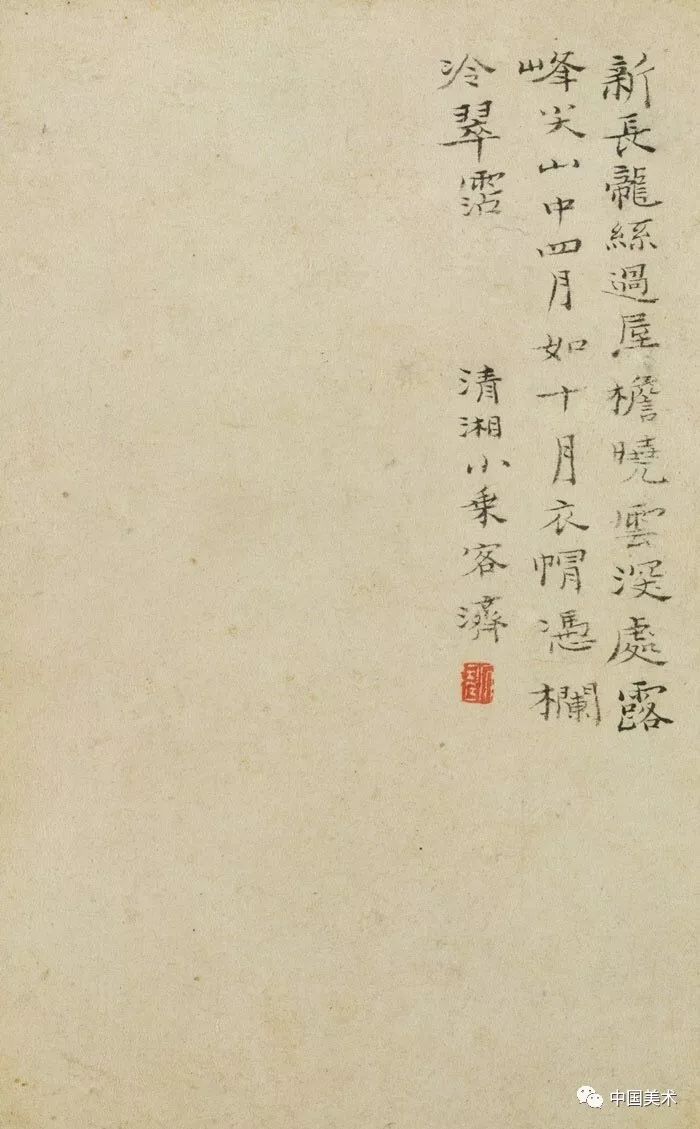 新長龍絲過屋檐曉雲深處露
峰尖山中四月如十月衣帽憑欄
冷翠霑
清湘小乘客濟
中国美术